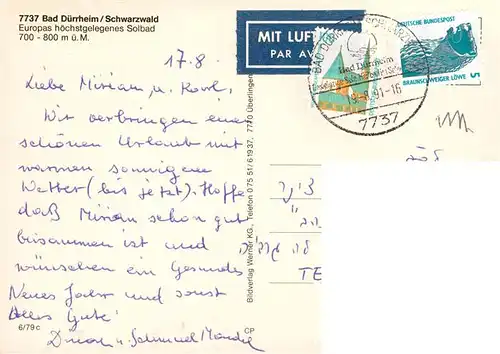 7737 Bad Dürrheim/Schwarzwald
Europas höchstgelegenes Solbad
700 - 800 m ü.M.
17.8.
Liebe Miriam, u. Karl,
Wir verbringen einen
schönen Urlaub mit
warmen sonnigem
Wetter (bis jetzt). Hoffe
daß Miriam schon gut
beisammen ist und
wünschen ein Gesundes
Neues Jahr und sonst
Alles Gute!
u. Schmuel
6/79c
CP
Bildverlag Werner KG, Telefon 0 75 51/6 19 37, 7770 Überlingen
MIT LUFTPOST
PAR AV
BAD DÜRRHEIM
Bad Dürrheim
91-16
7737
DEUTSCHE BUNDESPOST
BRAUNSCHWEIGER LÖWE
5
TE